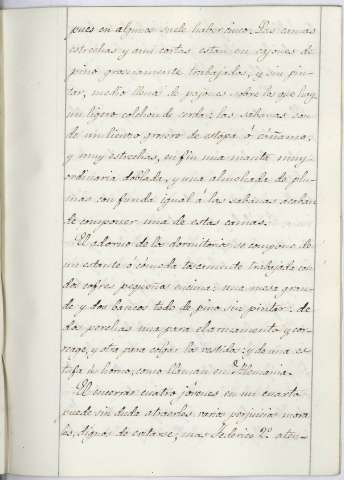 pues en algunos suele haber cinco. Las camas
estrechas y aun cortas estan en cajones de
pino groseramente trabajados, y sin pin-
tar, medio llenos de pajones sobre los que hay
un ligero colchon de cerda: las sábanas son
de un lienzo grosero de estopa ó cáñamo;
y muy estrechas, en fin una manta muy
ordinaria doblada, y una almohada de plu-
mas con funda igual á las sabanas acaban
de componer una de estas camas.
El adorno de los dormitorios se compone de
un estante ó cómoda toscamente trabajado con
dos cofres pequeños encima: una mesa gran-
de y dos bancos todo de pino sin pintar: de
dos perchas una para el armamento y cor-
reage, y otra para colgar los vestidos: y de una es-
tufa ú horno, como llaman en Alemania.
El encerrar cuatro jóvenes en un cuarto
puede sin duda atraerles varios perjuicios mora-
les, dignos de evitarse; mas Federico 2º. aten-